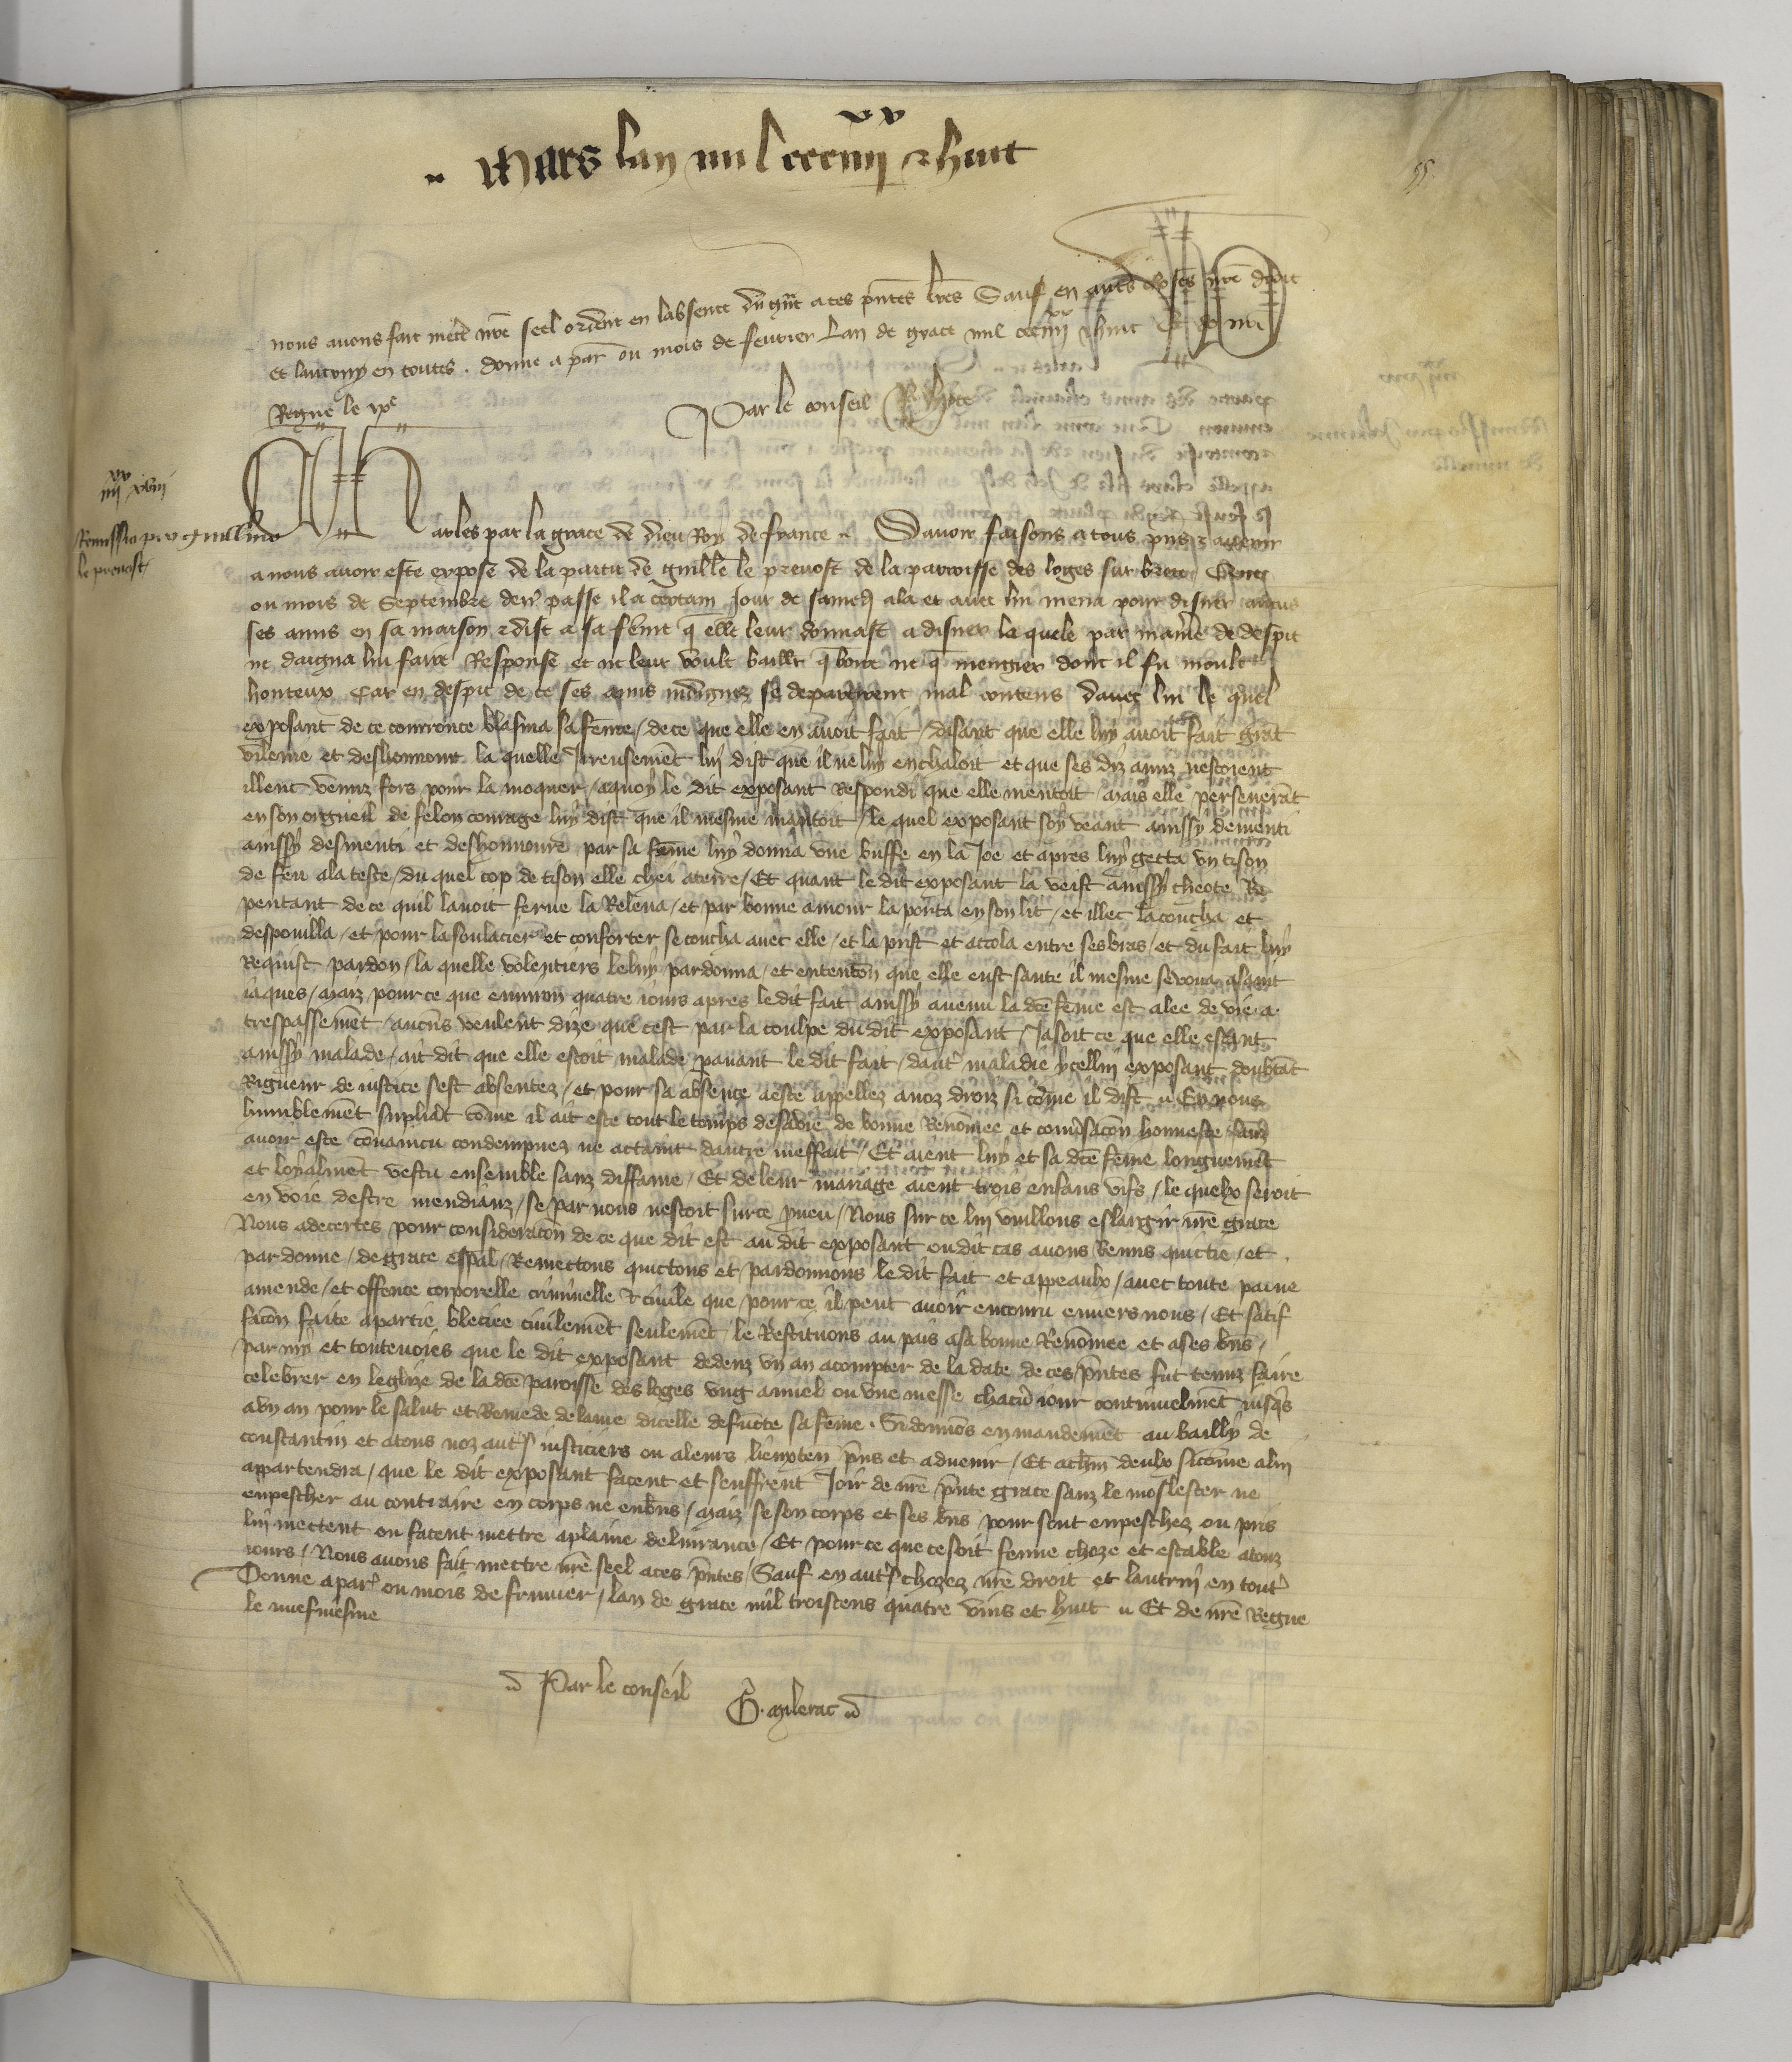 Mars lan mil ccc iiii xx et huit
55
nous avons fait mectre nre seel ordene en labsence du grant a ces pntes lres Sauf en autres choses nre droit
et lautruy en toutes . donne a par ou mois de fevrier Lan de grace mil ccc iiii xx et huit Et de nre
Regne le ixe
Par le conseil
iiii xx xviii
Remissio pro Guillmo
le prevost
Charles par la grace de dieu Roy de france Savoir faisons a tous pns et avenir
a nous avoir este expose de la partie de guillē le prevost de la parroisse des loges sur
ou mois de Septembre derr passe il a certain Jour de samedi ala et avec lui mena pour disner aucus
ses amis en sa maison et dist a sa fēme q elle leur donnast a disner la quele par maniere de despit
ne daigna lui faire Response et ne leur voult baillr q boire ne q mengier dont il fu moult
honteux Car en despit de ce ses amis indignez se departirent mal contens davec lui le quel
exposant de ce courrouce blasma sa fēme / de ce que elle en avoit fait / disant que elle luy avoit fait grāt
vilenie et deshonneur la quelle Ireusemēt luy dist que il ne luy enchaloit et que ses diz amiz nestoient
illenc venuz fors pour la moquer / aquoy le dit exposant Respondi que elle mentoit / maiz elle perseverāt
en son orgueil de felon courage luy dist que il mesme mantoit / le quel exposant soy veant ainssy dementi
ainssy desmenti et deshonnoure par sa fēme luy donna une buffe en la Joe et apres luy getta un tison
de feu ala teste / du quel cop de tison elle chei aterre / Et quant le dit exposant la veist ainssy cheoite Re
pentant de ce quil lavoit ferue la Releva / et par bonne amour la porta en son lit / et illec la coucha et
despoulla / et pour la soulacier et conforter se coucha avec elle / et la prist et accola entre ses bras / et du fait luy
Requist pardon / la quelle volentiers le luy pardonna / et entencōn que elle eust sante il mesme se voua a saint
iaques / maiz pour ce que environ quatre iours apres le dit fait ainssy avenu la dcē fēme est alee de vie a
trespassemēt / aucūs veulent dize que cest par la coulpe du dit exposant / Jasoit ce que elle estant
ainssy malade / ait dit que elle estoit malade pavant le dit fait / dautr maladie ycellui exposant doubtāt
Rigueur de iustice sest absentez / et pour sa absence a este appellez a noz droiz si cōme il dist Et nous
humblemēt supliāt cōme il ait este tout le temps de sa vie de bonne Renōmee et cōversacōn honneste sanz
avoir este cōvaincu condempnez ne actaint dautre meffait / Et aient luy et sa dcē fēme longuemēt
et loyalmēt vescu ensemble sanz diffame / Et de leur mariage aient trois enfans vifs / le quelx seroit
en voie destre mendianz / se par nous nestoit sur ce pveu / Nous sur ce lui vuillons eslargir nrē grace
Nous adecertes pour consideracōn de ce que dit est au dit exposant ou dit cas avons Remis quictie / et
pardonne / de grace espāl / Remectons quictons et pardonnons le dit fait et appeaulx / avec toute paine
amende / et offence corporelle crimīnelle & civile que pour ce il peut avoir encouru envers nous / Et satif
facōn faite a partie bleciee civilemēt seulemēt / le Restituons au pais a sa bonne Renōmee et a ses bns /
par my et toutevoies que le dit exposant dedenz un an a compter de la date de ces pntes fut tenuz faire
celebrer en leglize de la dcē paroisse des loges ung annuel ou une messe chacū iour continuelmēt iusqs
a un an pour le salut et Remede de lame dicelle defuncte sa fēme . Si donnōs en mandemēt au bailly de
constantin et a tous noz autrs iusticiers ou a leurs lieuxten pns et advenir / Et a chm deulx si cōme a lui
appartendra / que le dit exposant facent et seuffrent Joir de nrē pnte grace sanz le moslester ne
enpescher au contraire en corps ne en bns / maiz se son corps et ses bns pour sont enpeschez ou pris
lui mettent ou facent mettre a plaine delivrance / Et pour ce que ce soit ferme choze et estable a touz
iours / Nous avons fait mectre nrē seel a ces pntes / Sauf en autrs chozez nrē droit et lautruy en toutr
Donne a par ou mois de frevier / lan de grace mil troiscens quatre vins et huit Et de nrē Regne
le neufviesme
Par le conseil G. milerac